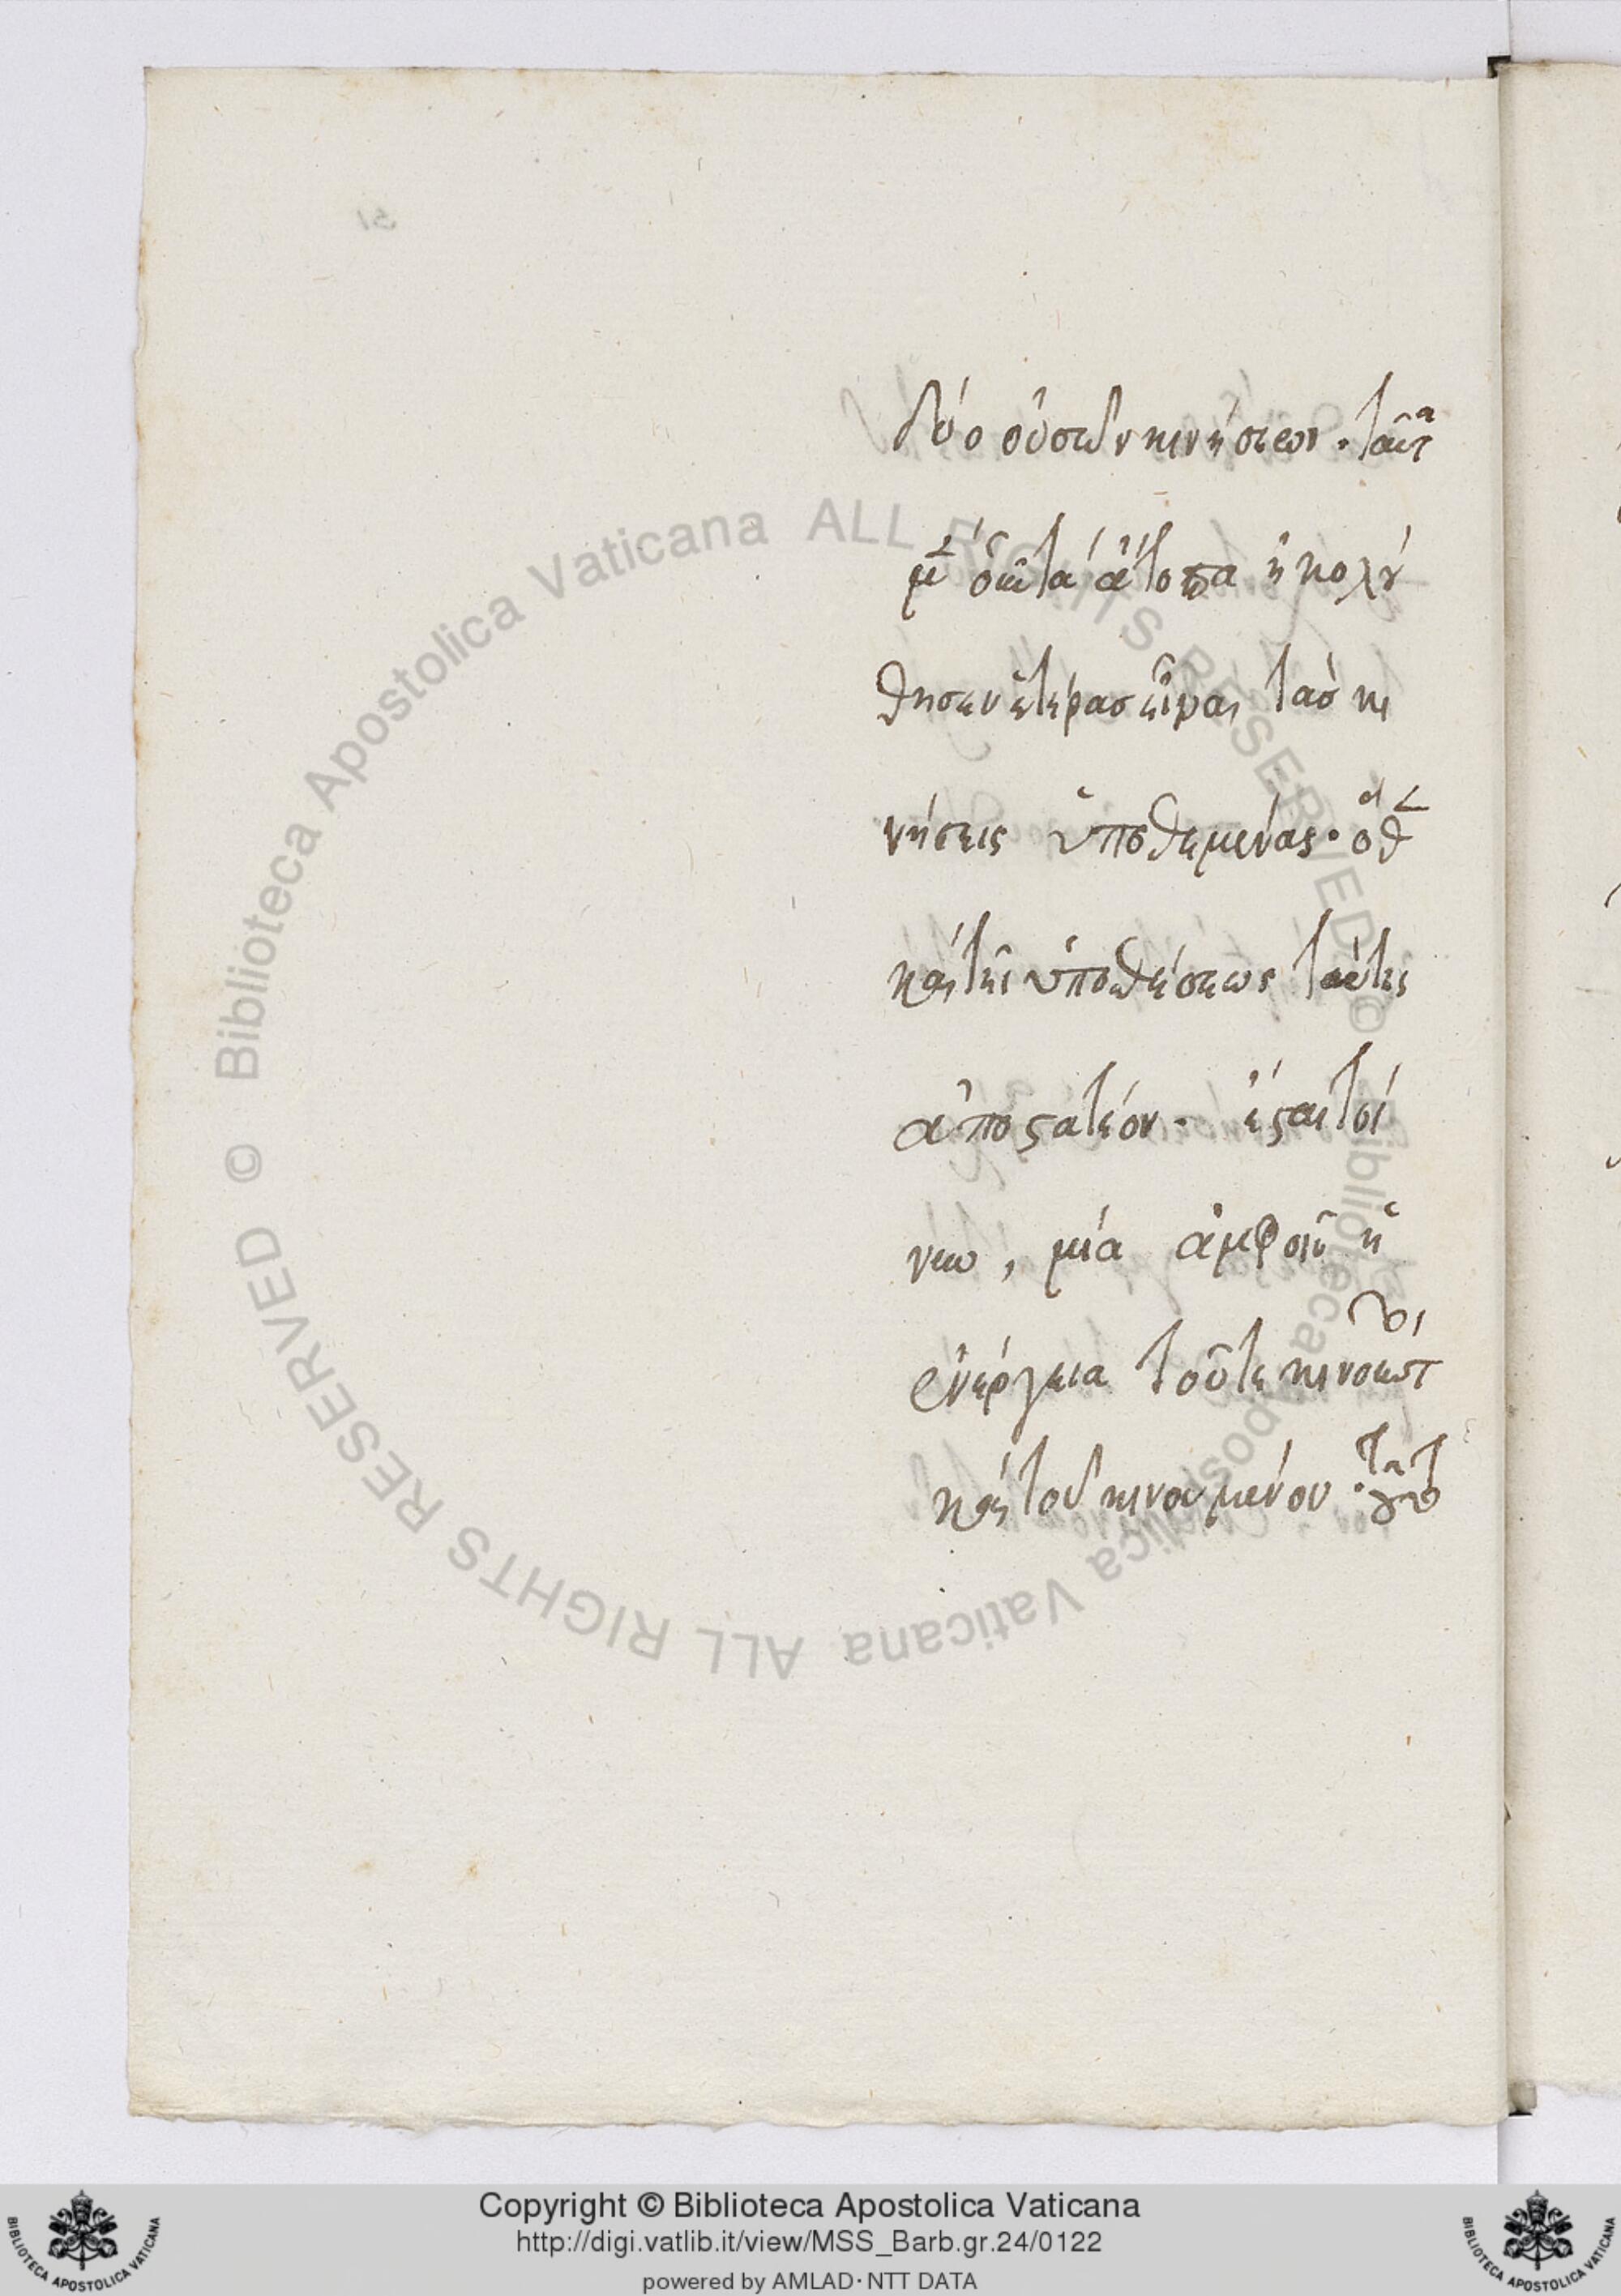 δύο οὐσῶν κινήσεων · ταῦτα
μὲν οὖν τὰ ἄτοπα ἠκολού
θησεν ἑτέρας εἶναι τὰς κι
νήσεις ὑποθεμένας · ὅθεν
καὶ τῆς ὑποθέσεως ταύτης
ἀποστατέον · ἔσται τοί
νυν, μία ἀμφοῖν ἡ
ἐνέργεια τοῦτε κινοῦντος
καὶ τοῦ κινουμένου ·
Biblioteca Apostolica Vaticana ALL RIGHTS RESERVED ©
Biblioteca Apostolica Vaticana ALL RIGHTS RESERVED ©
Copyright © Biblioteca Apostolica Vaticana
http://digi.vatlib.it/view/MSS_Barb.gr.24/0122
powered by AMLAD · NTT DATA
BIBLIOTECA APOSTOLICA VATICANA
BIBLIOTECA APOSTOLICA VATICANA